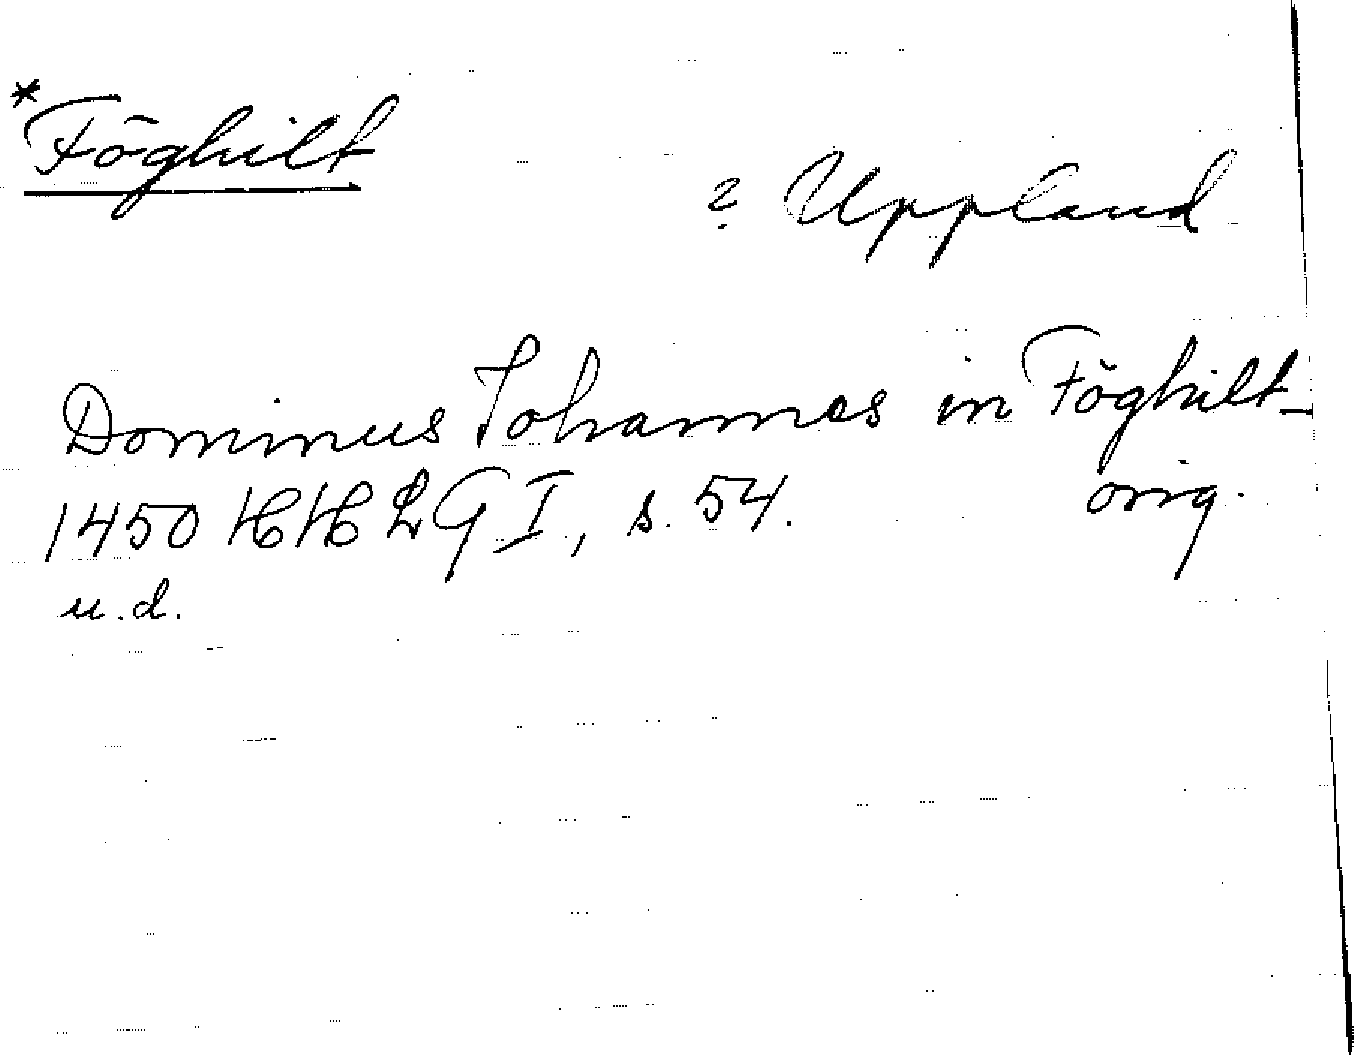 *Föghilt
? Uppland
Dominus Johannes in Föghilt
1450 HH LG I, s. 54. orig.
u.d.